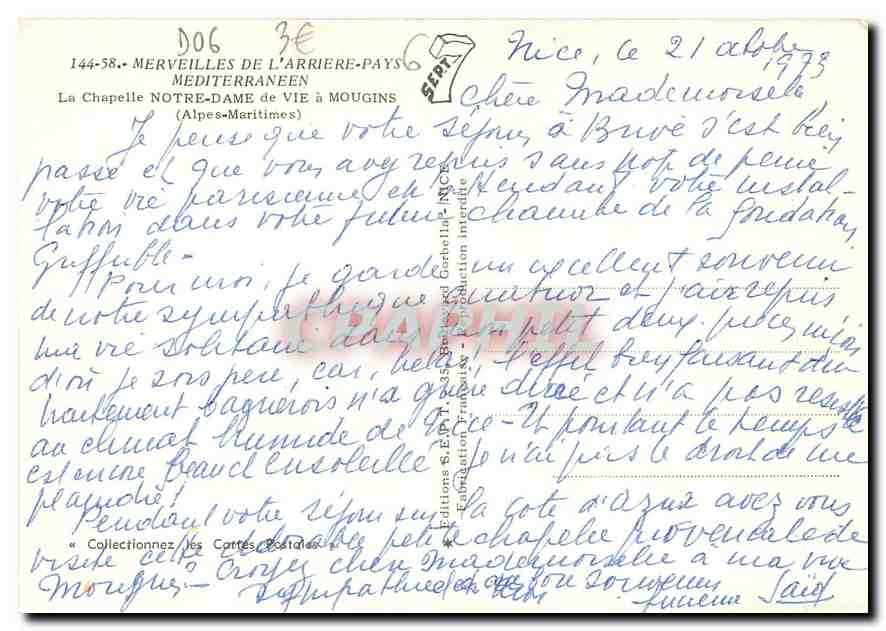 D06 3€ 6
144-58.- MERVEILLES DE L'ARRIERE-PAYS
MEDITERRANEEN
La Chapelle NOTRE-DAME de VIE à MOUGINS
(Alpes-Maritimes)
SEPT
Nice, le 21 octobre
1973
Chère Mademoiselle,
Je pense que votre séjour à Brive s'est bien
passé et que vous avez repris sans trop de peine
votre vie parisienne en attendant votre instal-
lation dans votre future chambre de la fondation
Pour moi, je garde un excellent souvenir
de notre sympathique quatuor et j'ai repris
ma vie solitaire dans mon petit deux-pièces niçois
d'où je sors peu, car, hélas, l'effet bienfaisant du
traitement bagnérois n'a guère duré et n'a pas résisté
au climat humide de Nice - Et pourtant le temps
est encore beau et ensoleillé. Je n'ai pas le droit de me
plaindre!
Pendant votre séjour sur la Côte d'Azur avez vous
visité cette adorable petite chapelle provençale de
Mougins? - Croyez chère Mademoiselle à ma vive
sympathie souvenirs
Lucienne
« Collectionnez les Cartes Postales »
* Editions S.E.P.T. - 35, Boulevard Gorbella - NICE
Fabrication Française - Reproduction interdite
CPAPHIL